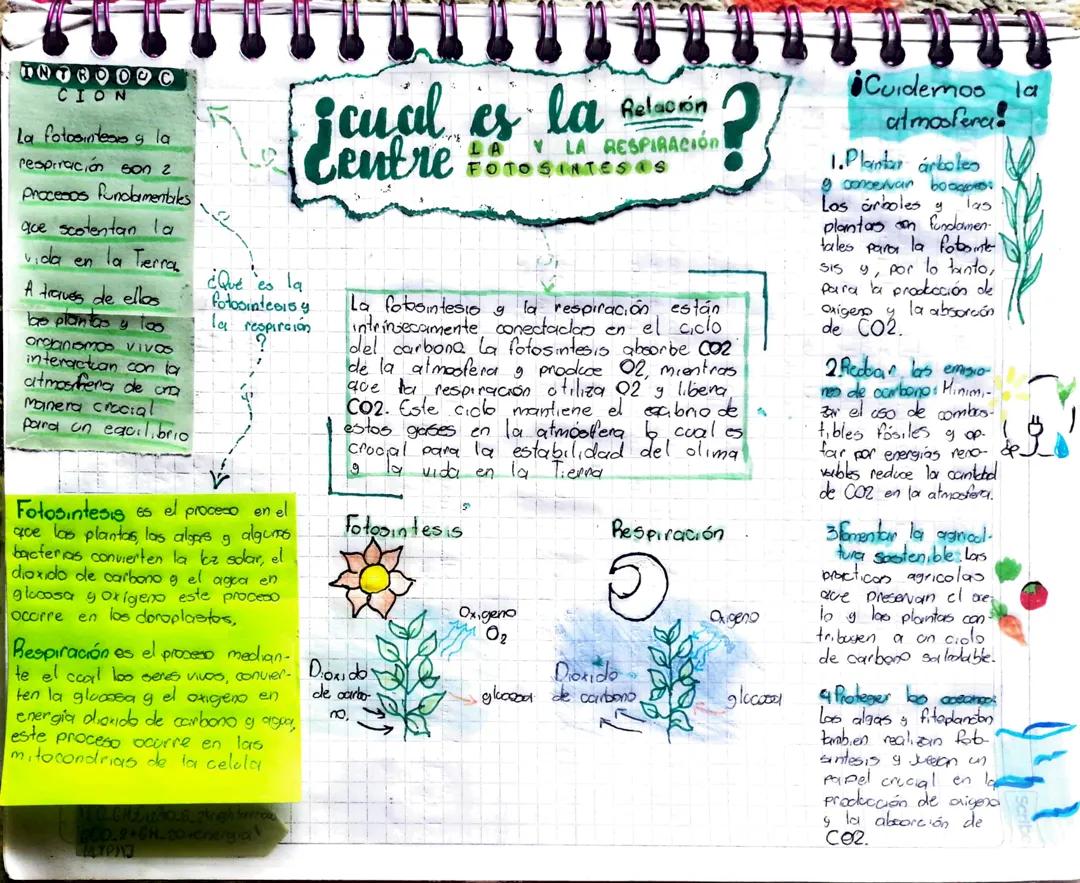 ¿cual es la Relación
entre LA Y LA RESPIRACIÓN?
FOTOSINTESIS
INTRODUC
CION
La fotosintesis y la
respiración son 2
procesos fundamentales
que sostentan la
vida en la Tierra.
A traves de ellos
las plantas y los
organismos vivos
interactuan con la
atmosfera de una
manera crucial
para un equilibrio
¿Qué es la
fotosintesis y
la respiración
?
Fotosintesis es el proceso en el
que las plantas, las algas y algunas
bacterias convierten la luz solar, el
dioxido de carbono y el agua en
glucosa y oxígeno este proceso
ocurre en los cloroplastos,
Respiración es el proceso median-
te el cual los seres vivos, convier-
ten la glucosa y el oxigeno en
energia dioxido de carbono y agua,
este proceso ocurre en las
mitocondrias de la celula
La fotosintesis y la respiración están
intrinsecamente conectadas en el ciclo
del carbono. La fotosintesis absorbe CO2
de la atmosfera y produce O2, mientras
que la respiración utiliza O2 y libera
CO2. Este ciclo mantiene el equilibrio de
estos gases en la atmósfera lo cual es
crucial para la estabilidad del clima
y la vida en la Tierra
Fotosintesis
Oxigeno
O2
Dioxido
de carbo-
no.
glucosa
Respiración
Oxigeno
Dioxido
de carbono
glucosa
¡Cuidemos la
atmosfera!
1. Plantar árboles
y conservan bosques:
Los árboles y las
plantas son fundamen-
tales para la fotosinte-
sis y, por lo tanto,
para la producción de
oxigeno y la absorción
de CO2.
2. Reducir las emisio-
nes de carbono: Minimi-
zar el uso de combus-
tibles fósiles y op-
tar por energías reno-
vables reduce la cantidad
de CO2 en la atmosfera.
3 Fomentar la agricul-
tura sostenible: Las
practicas agricolas
que preservan el sue-
lo y las plantas con
tribuyen a un ciclo
de carbono saludable.
4 Proteger los oceanos:
Las algas y fitoplancton
tanbien realizan foto-
sintesis y juegan un
papel crucial en la
producción de oxigeno
y la absorción de
CO2.
Scribe